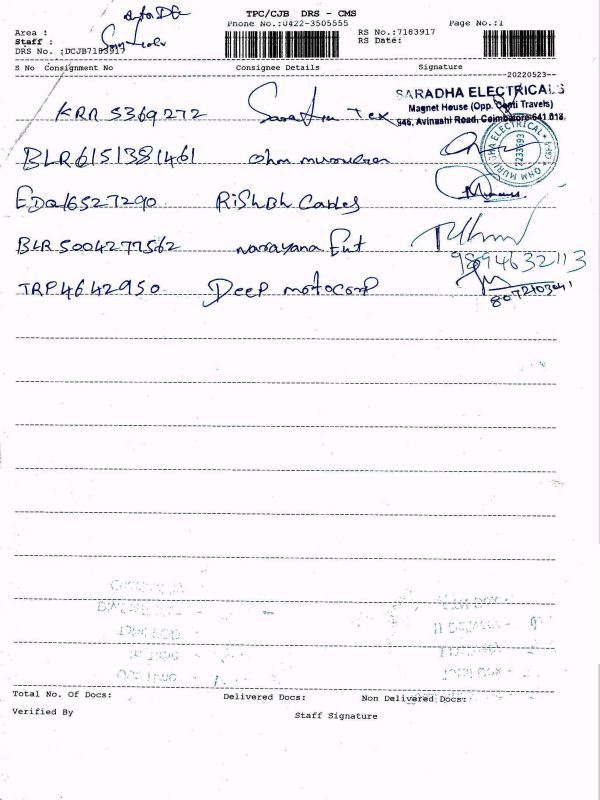 TPC/CJB DRS - CMS
Phone No.:0422-3505555
Page No.:1
Area :
Staff :
DRS No. :DCJB7183917
RS No.:7183917
RS Date:
S No Consignment No Consignee Details Signature
20220523
SARADHA ELECTRICALS
Magnet House (Opp. Conti Travels)
946, Avinashi Road, Coimbatore-641 018.
KRR 5369272
BLR6151381461 ohm
OHM MURUGHA ELECTRICAL
2235693
EDQ16527290 RiShBh Cables
BLR5004277562 narayana Ent
9894632113
TRP4642950 Deep motocorp
Total No. Of Docs: Delivered Docs: Non Delivered Docs:
Verified By Staff Signature